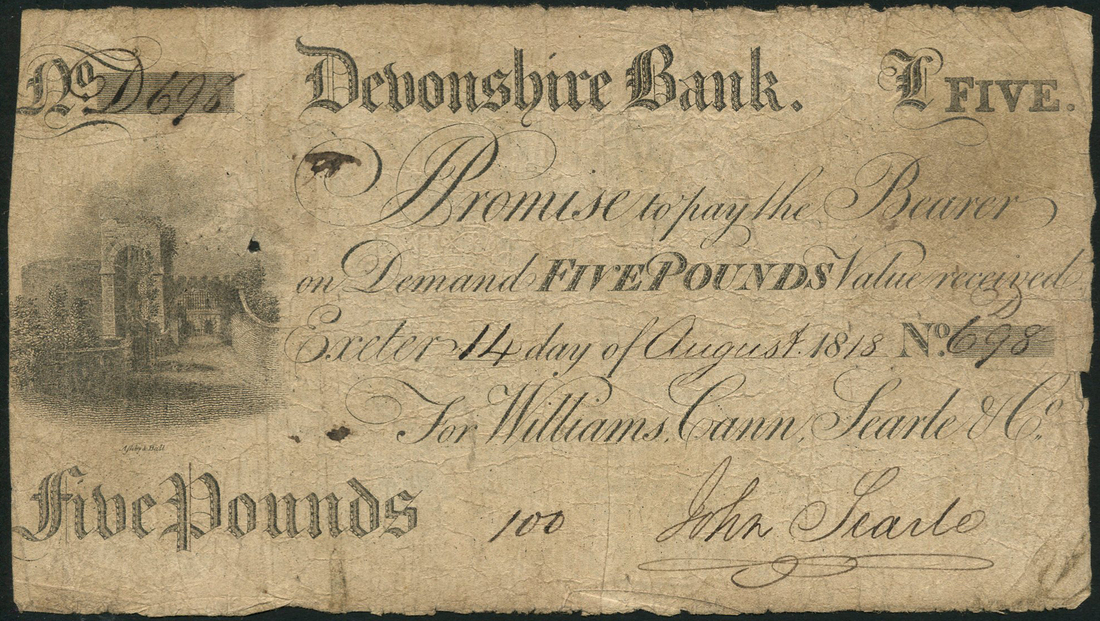 No D698 Devonshire Bank. £ FIVE.
I Promise to pay the Bearer
on Demand FIVE POUNDS Value received
Exeter 14 day of August. 1818 No. D698
For Williams, Cann, Searle & Co.
Five Pounds 100 John Searle